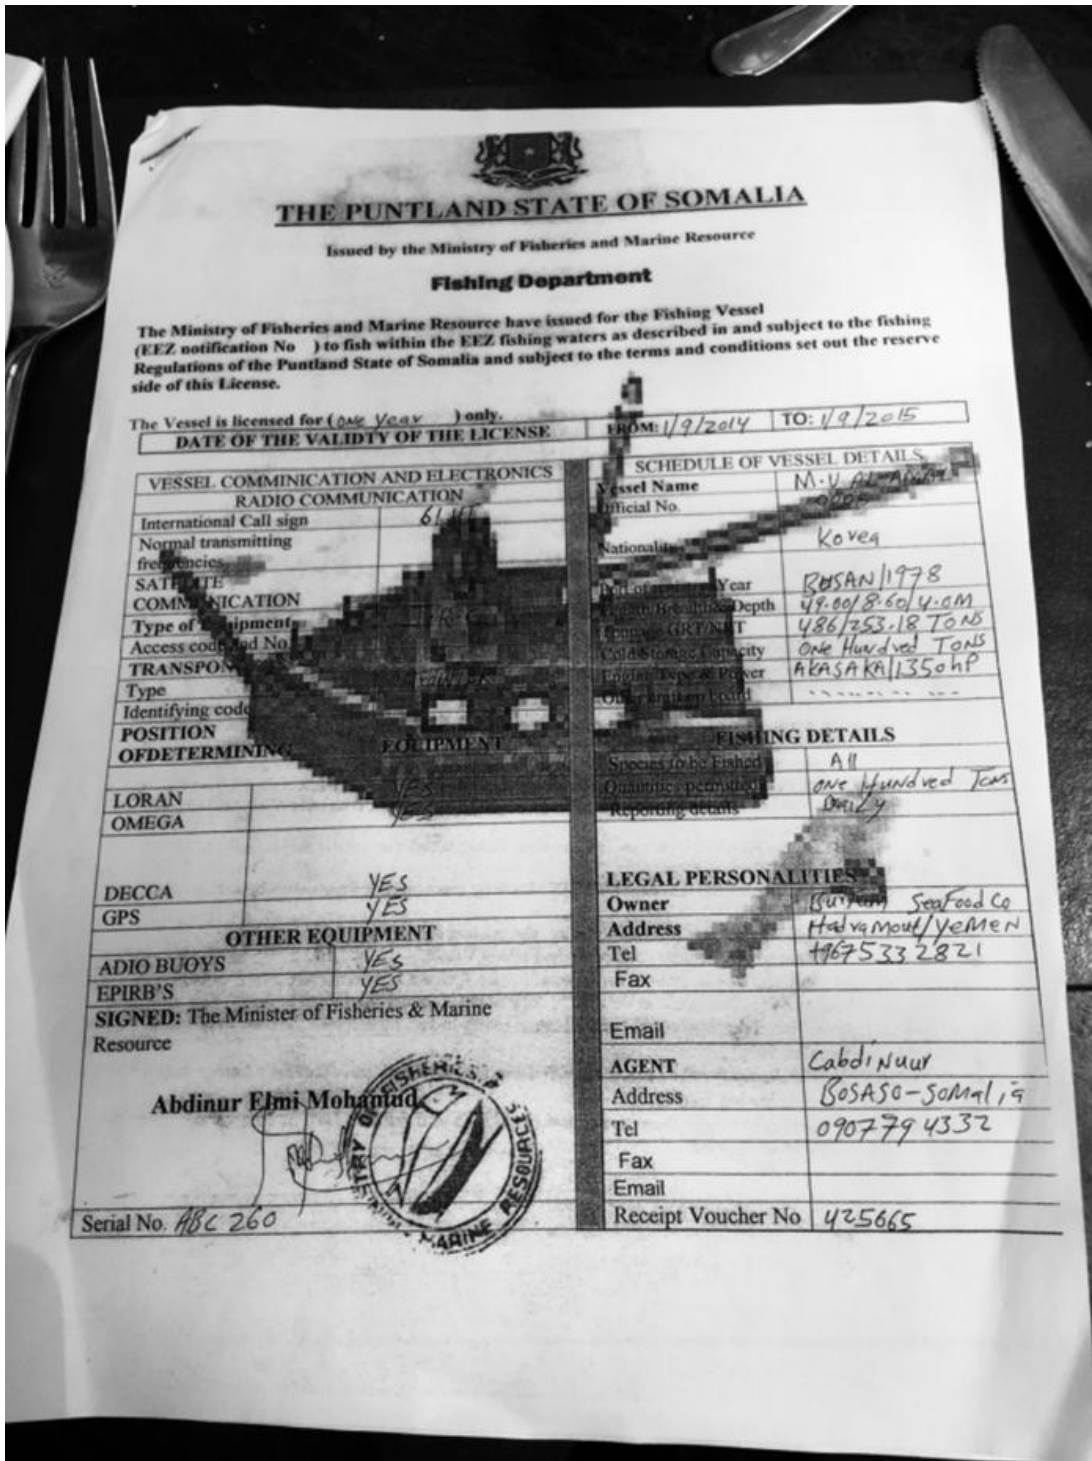 THE PUNTLAND STATE OF SOMALIA
Issued by the Ministry of Fisheries and Marine Resource
Fishing Department
The Ministry of Fisheries and Marine Resource have issued for the Fishing Vessel
(EEZ notification No ) to fish within the EEZ fishing waters as described in and subject to the fishing
Regulations of the Puntland State of Somalia and subject to the terms and conditions set out the reserve
side of this License.
The Vessel is licensed for ( one Year ) only.
DATE OF THE VALIDTY OF THE LICENSE FROM: 1/9/2014 TO: 1/9/2015
VESSEL COMMINICATION AND ELECTRONICS
RADIO COMMUNICATION
International Call sign
Normal transmitting
frequencies
SATELITE
COMMUNICATION
Type of Equipment
Access code and No
TRANSPON
Type
Identifying code
POSITION
OFDETERMINING EQUIPMENT
LORAN YES
OMEGA YES
DECCA YES
GPS YES
OTHER EQUIPMENT
ADIO BUOYS YES
EPIRB'S YES
SIGNED: The Minister of Fisheries & Marine
Resource
Abdinur Elmi Mohamud
MINISTRY OF FISHERIES & MARINE RESOURCES
Serial No. ABC 260
SCHEDULE OF VESSEL DETAILS
Vessel Name M.V AL
Official No.
Nationality Korea
Year BUSAN/1978
Depth 49.00/8.60/4.0M
GRT/NRT 486/253.18 TONS
Cold Storage Capacity ONE Hundred TONS
Engine Type & Power AKASAKA/1350hP
FISHING DETAILS
Species to be Fished All
Quantities permitted ONE Hundred Tons
Reporting details Daily
LEGAL PERSONALITIES
Owner SeaFood Co
Address Hadramout/YEMEN
Tel +9675332821
Fax
Email
AGENT Cabdinuur
Address BOSASO-SOMalia
Tel 0907794332
Fax
Email
Receipt Voucher No 425665